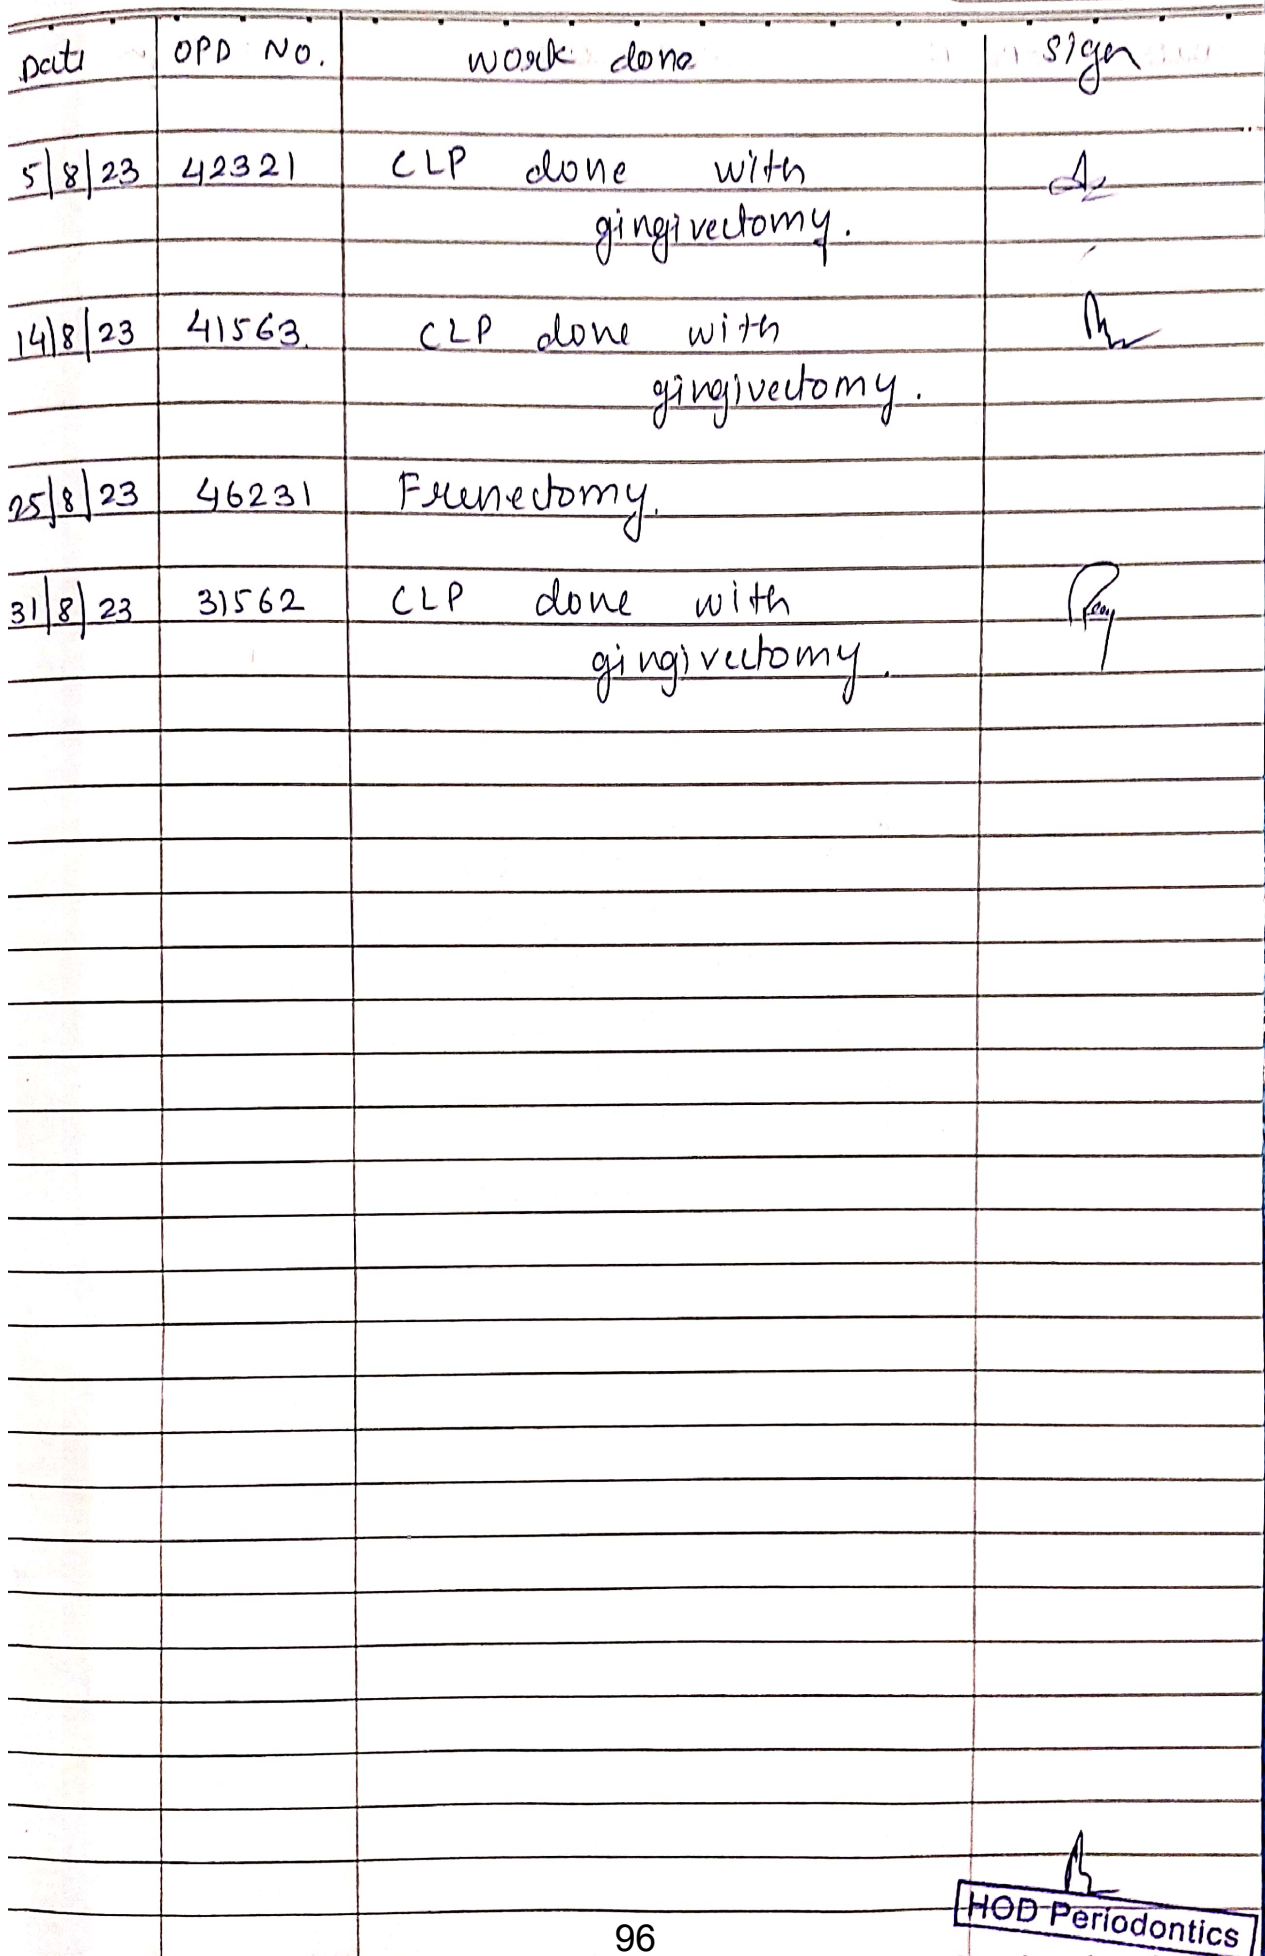 Date OPD No. Work done Sign
5/8/23 42321 CLP done with
gingivectomy.
14/8/23 41563. CLP done with
gingivectomy.
25/8/23 46231 Frenectomy.
31/8/23 31562 CLP done with
gingivectomy.
HOD Periodontics
96